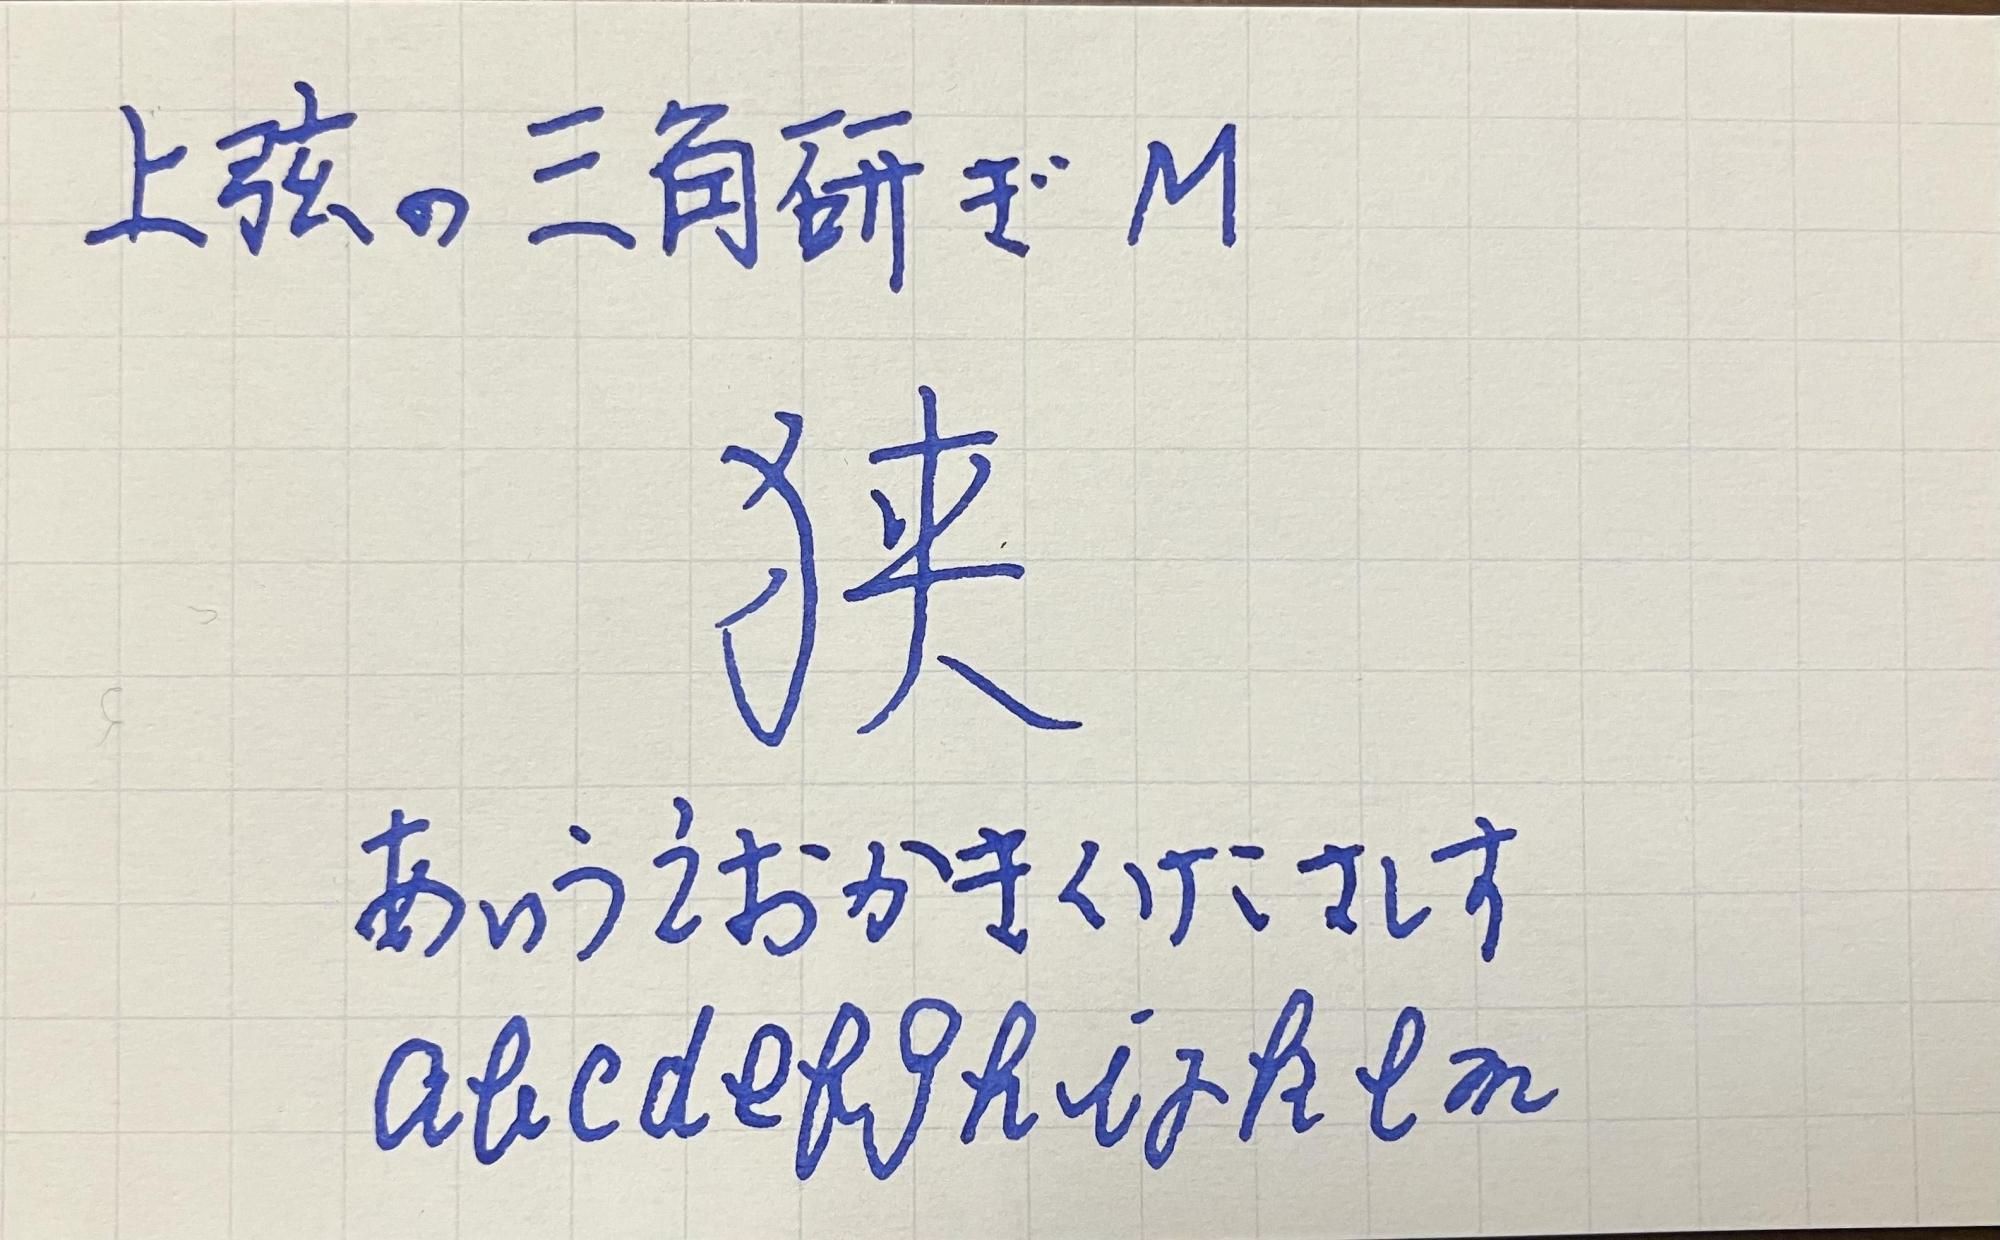 上弦の三角研ぎ M
狭
あいうえおかきくけこさしす
abcdefghijklm